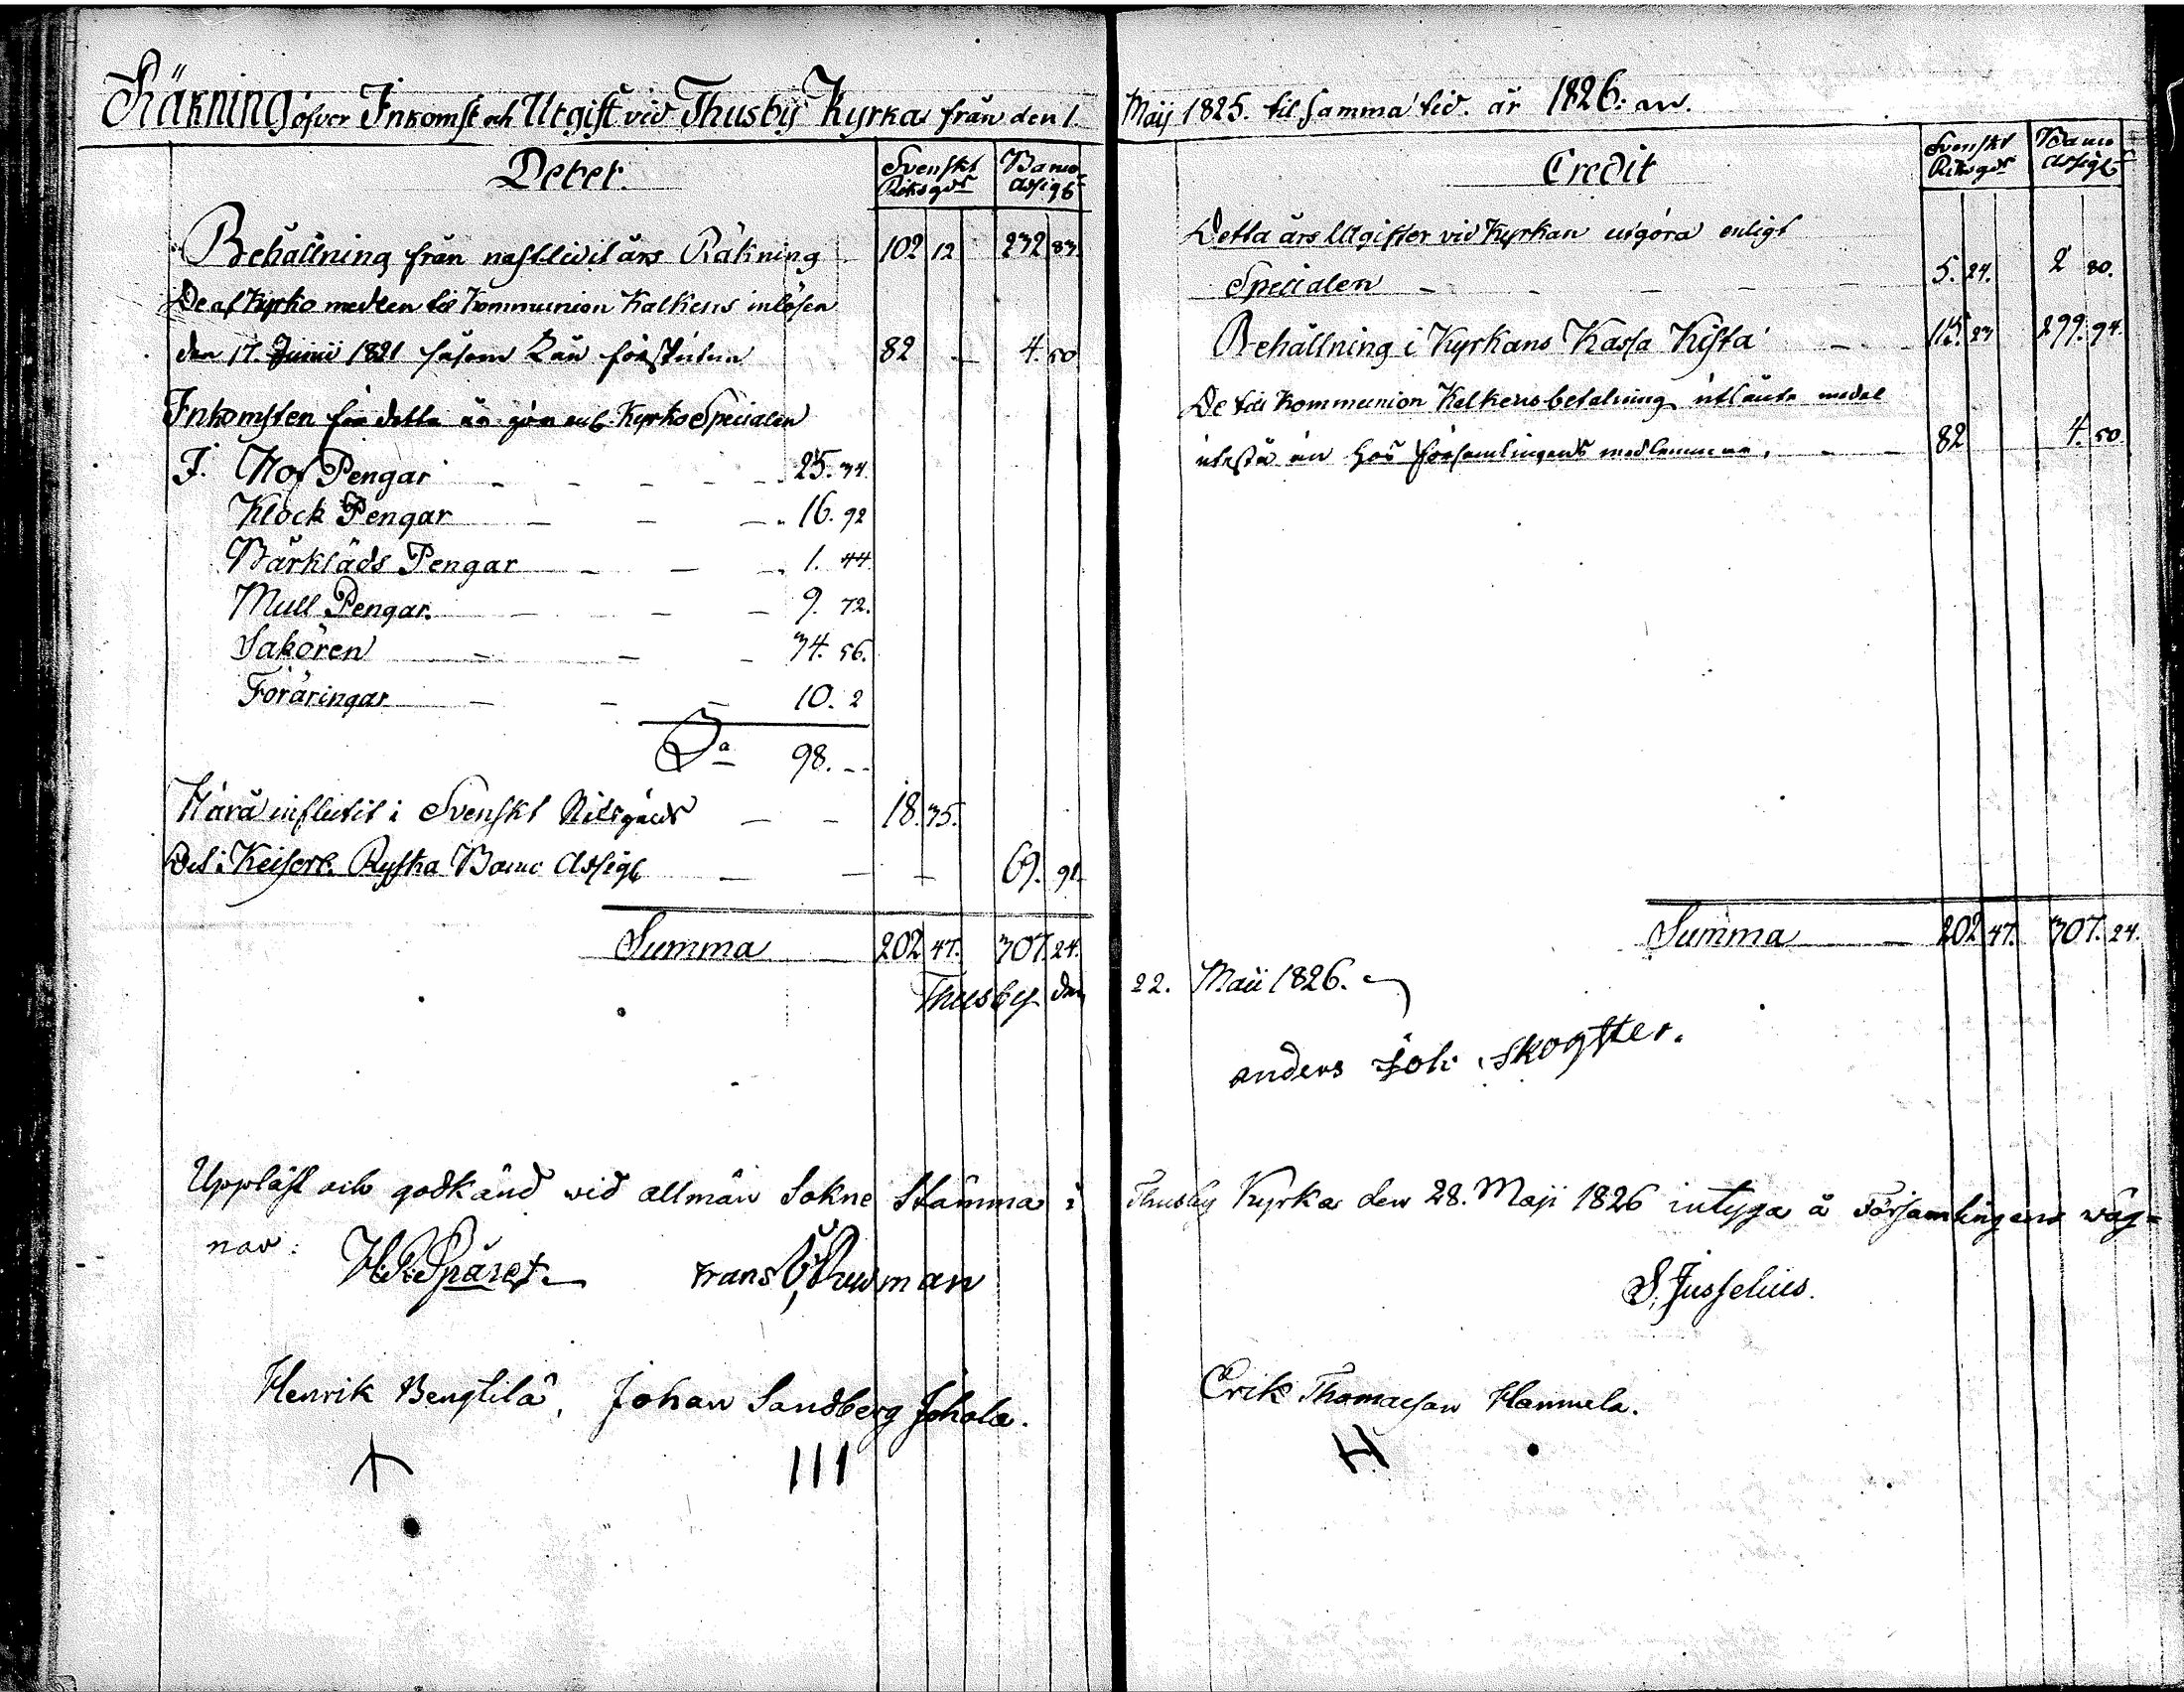 Räkning öfver Inkomst och Utgift vid Thusby Kyrka från den 1.
Debet.
Svenskt Riksgds
Banco Assigt
Behållning från nästledit års Räkning 102 12 232 83
De af Kyrko medlen til Kommunion Kalkens inlösen
den 17. Junii 1821 såsom Lån förskutna 82 — 4. 50
Inkomsten för detta år gör enl. Kyrko Specialen
I. Hof Pengar - - - - 25. 34.
Klock Pengar — — — 16. 92
Bårkläds Pengar - — - 1. 44
Mull Pengar. — — — 9. 72.
Sakören — — - 34. 56.
Föräringar — - — 10. 2
Sa 98. --
Härå influtit i Svenskt Riksgäld — — 18. 35.
Dito i Keiserl. Ryska Banco Assigt — — — 69. 91.
Summa — 202 47. 307. 24.
Thusby den
Upläst och godkänd wid allmän Sokne Stämma i
nar:
Frans
Henrik Bengtilä, Johan Sandberg Johola.
III
Maij 1825. til samma tid. år 1826.
Credit
Svenskt Riksgds
Banco Assigt
Detta års Utgifter vid Kyrkan utgöra enligt
Specialen - - - — — 5. 24. 2 80.
Behållning i Kyrkans Kassa Kista — - 115. 23 299. 94.
De til Kommunion Kalkens betalning utlånte medel
utestå än hos församlingens medlemmar. - — 82 4. 50.
Summa — 202 47. 307. 24.
22. Maii 1826.
anders Joh: skogster.
Thusby Kyrka den 28. Maji 1826 intyga å Församlingens wäg=
S. Jusselius.
Erik Thomasson Hannula.
H